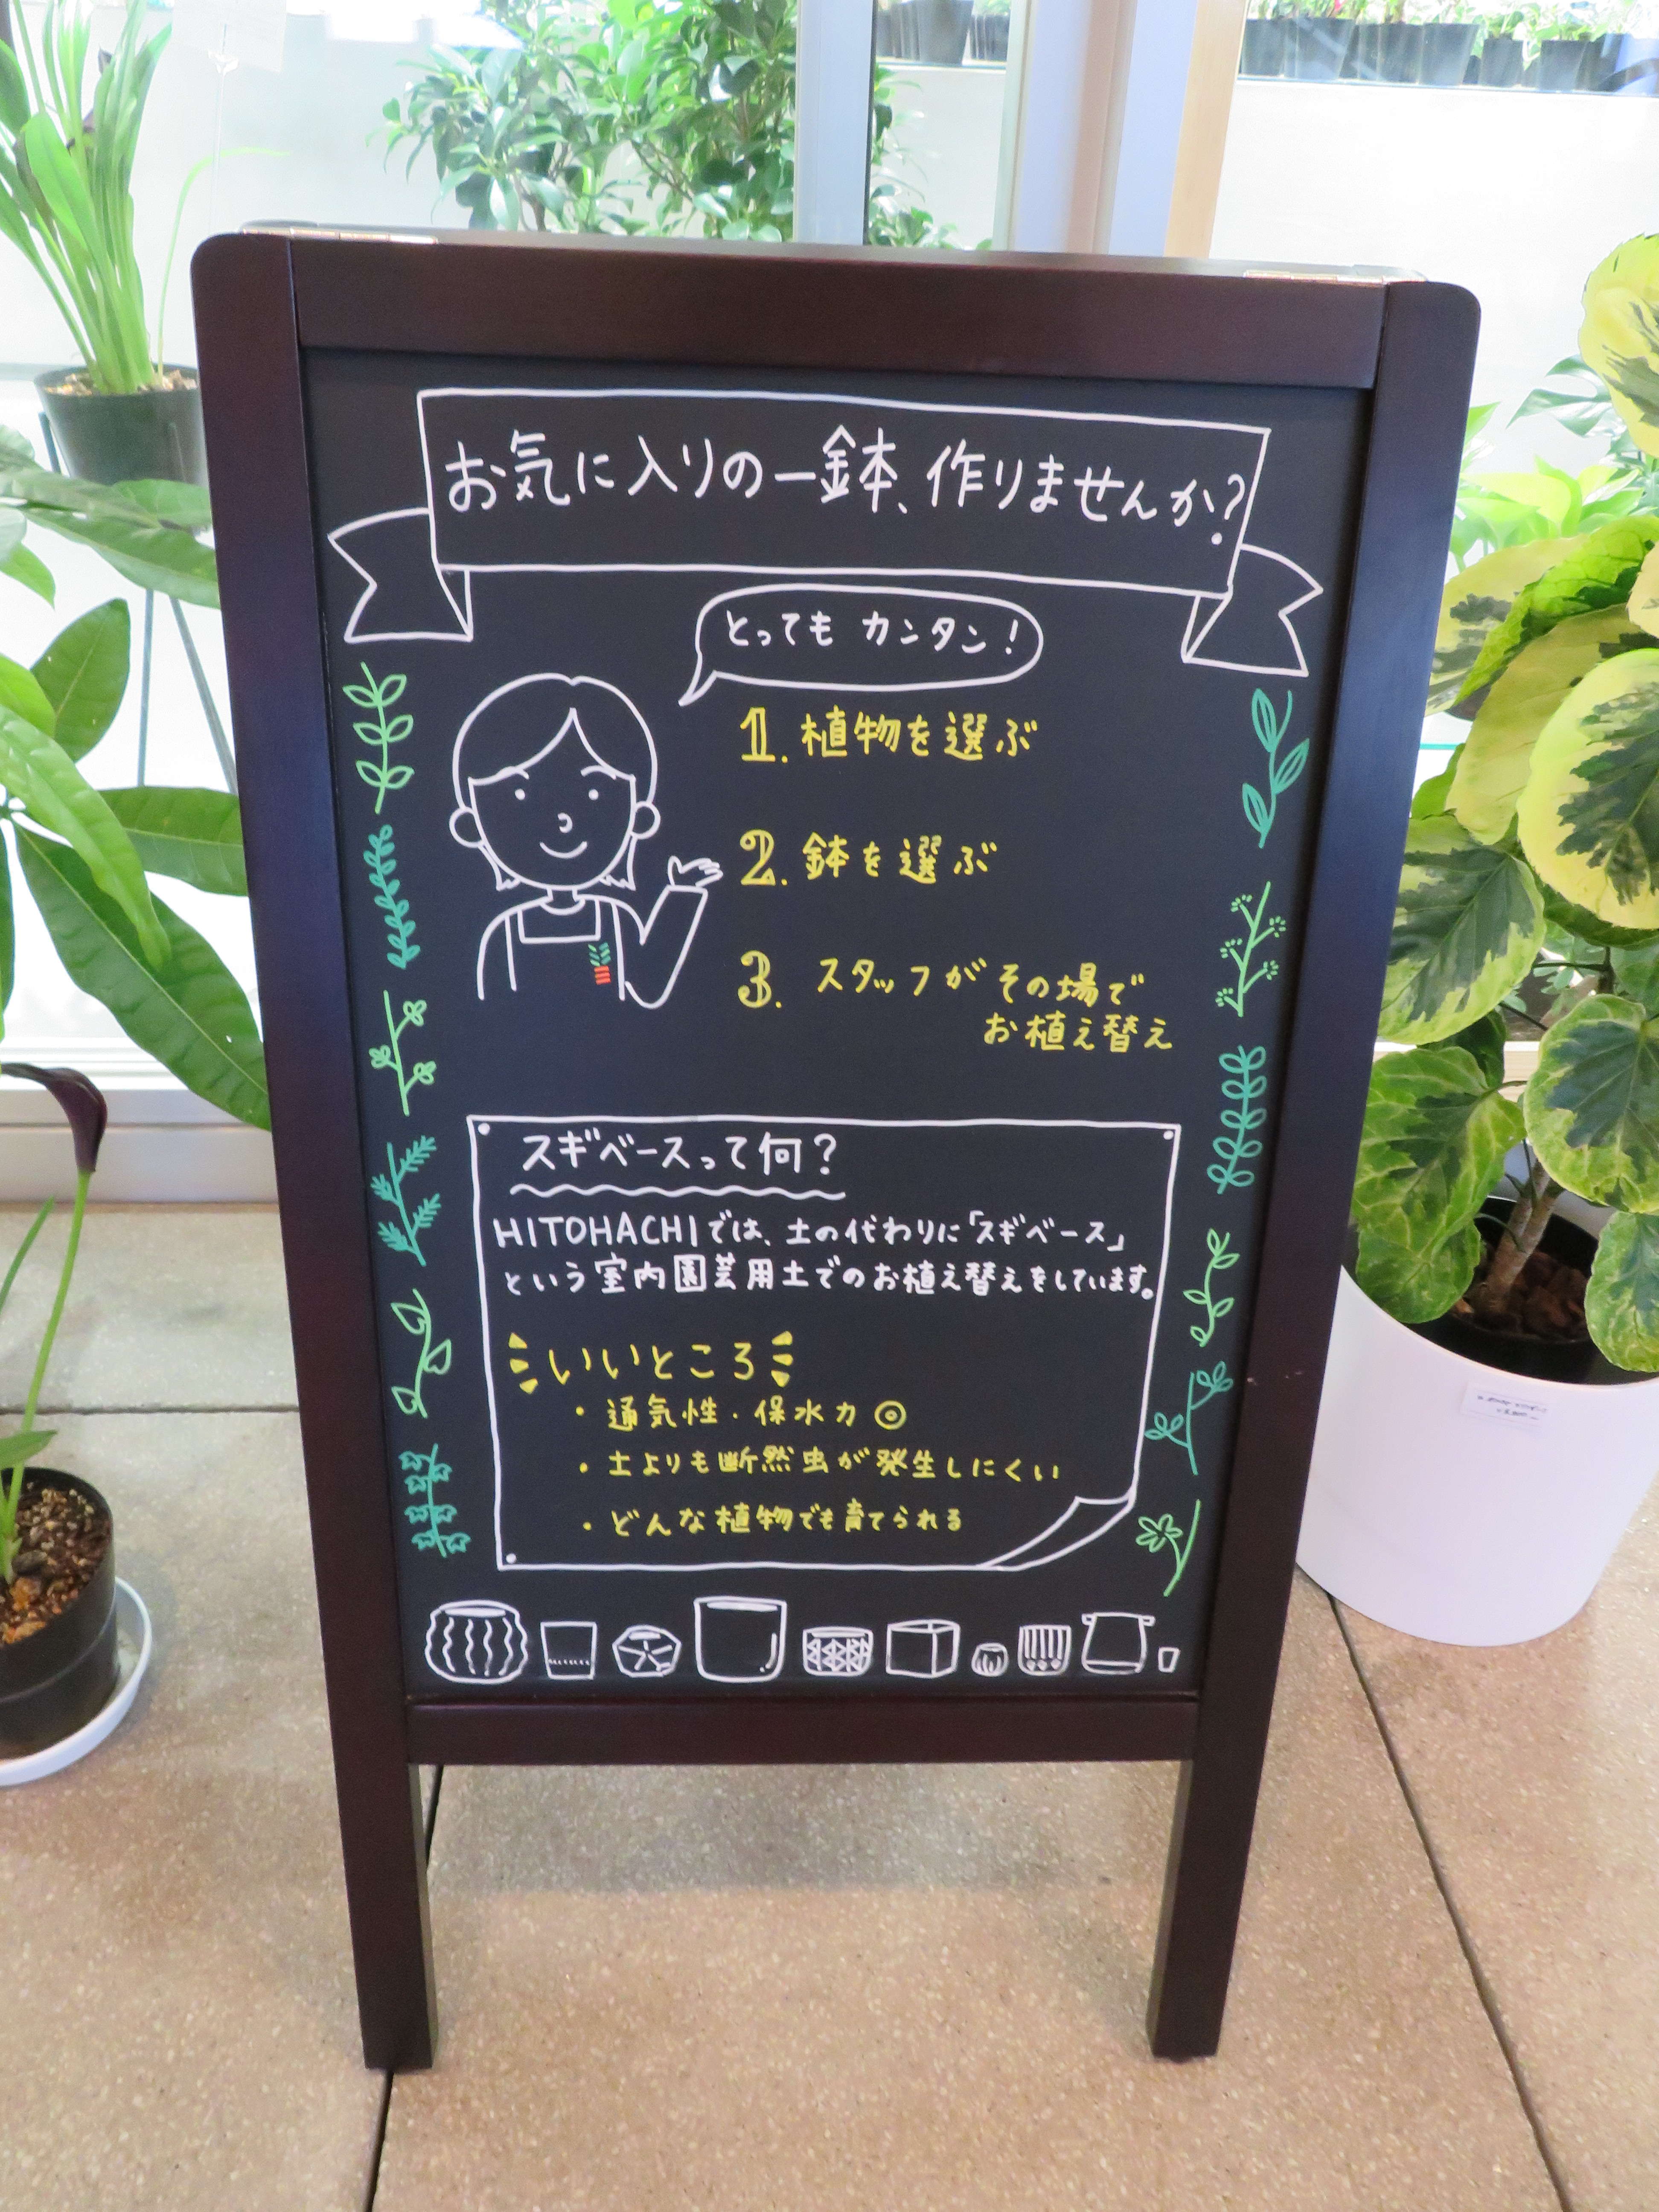 お気に入りの一鉢、作りませんか?
とってもカンタン!
1. 植物を選ぶ
2. 鉢を選ぶ
3. スタッフがその場で
お植え替え
スギベースって何?
HITOHACHIでは、土の代わりに「スギベース」
という室内園芸用土でのお植え替えをしています。
いいところ
・通気性・保水力◎
・土よりも断然虫が発生しにくい
・どんな植物でも育てられる